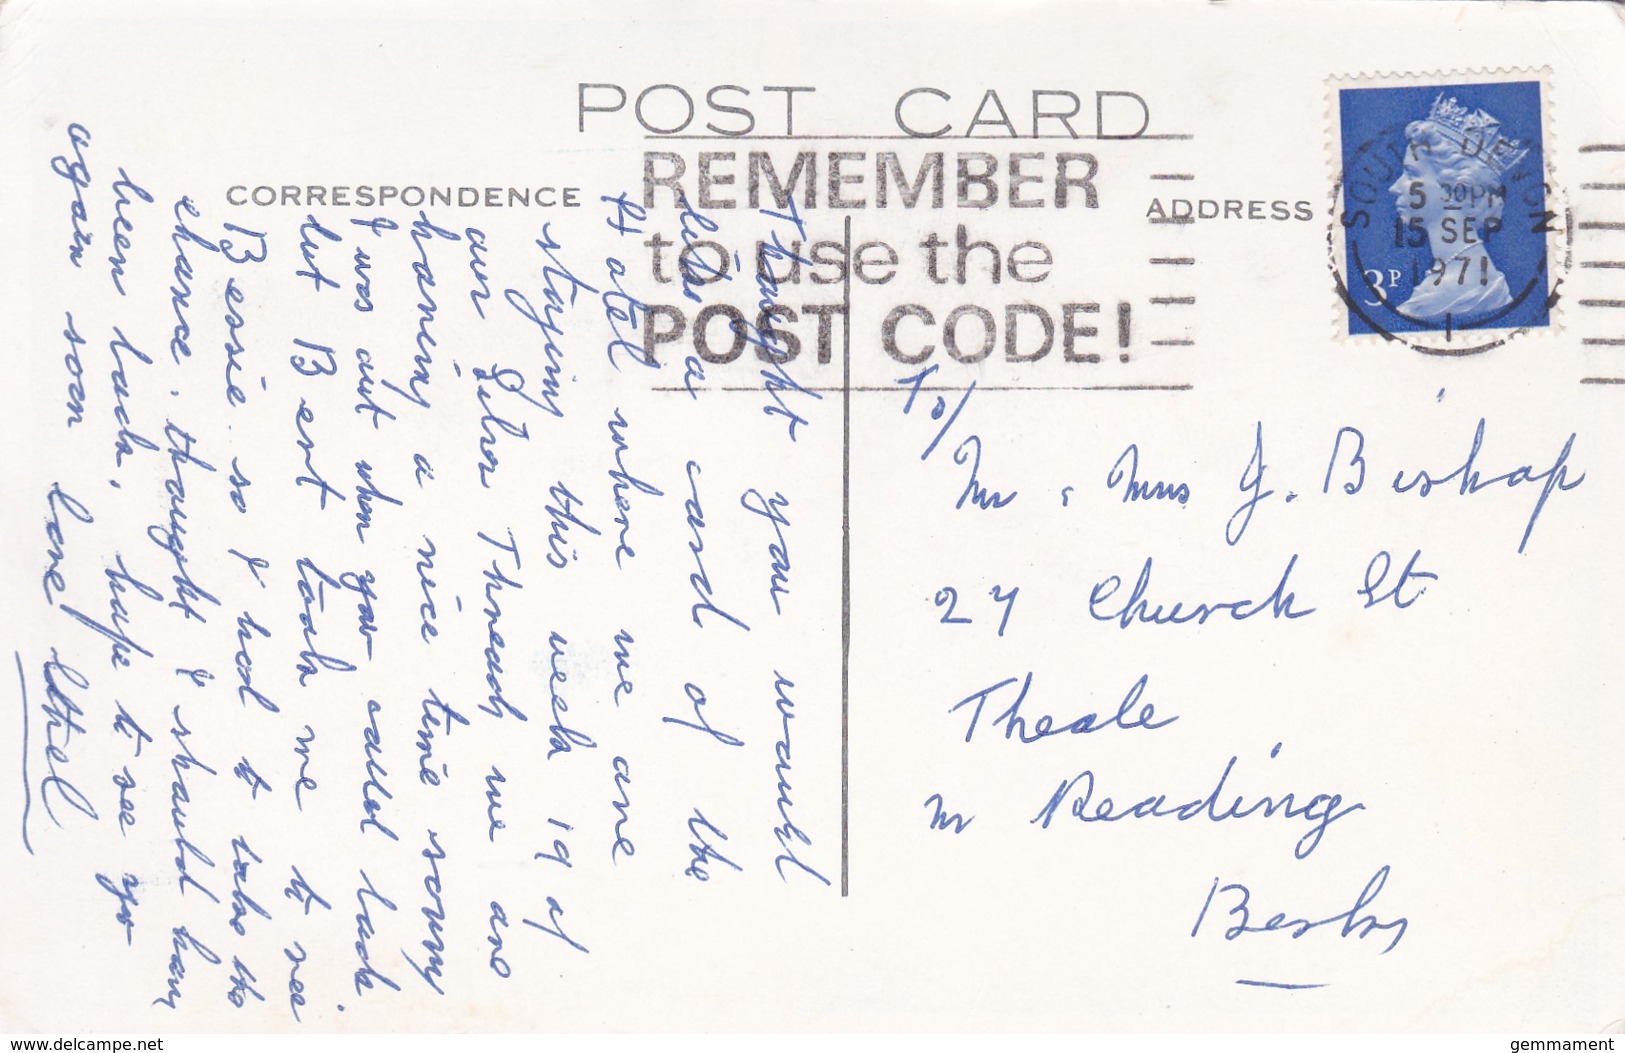 POST CARD
CORRESPONDENCE
ADDRESS
REMEMBER
to use the
POST CODE!
SOUTH DEVON
5 30PM
15 SEP
1971
1
3P
Thought you would
like a card of the
Hotel where we are
staying this week 19 of
over Silver Thread we are
having a nice time sorry
I was out when you called back
but Bert took me to see
Bessie so I had to take the
chance. thought I should have
been back, hope to see you
again soon love Ethel
To/
Mr & Mrs J. Bishop
27 Church St
Theale
Nr Reading
Berks
www.delcampe.net
gemmament